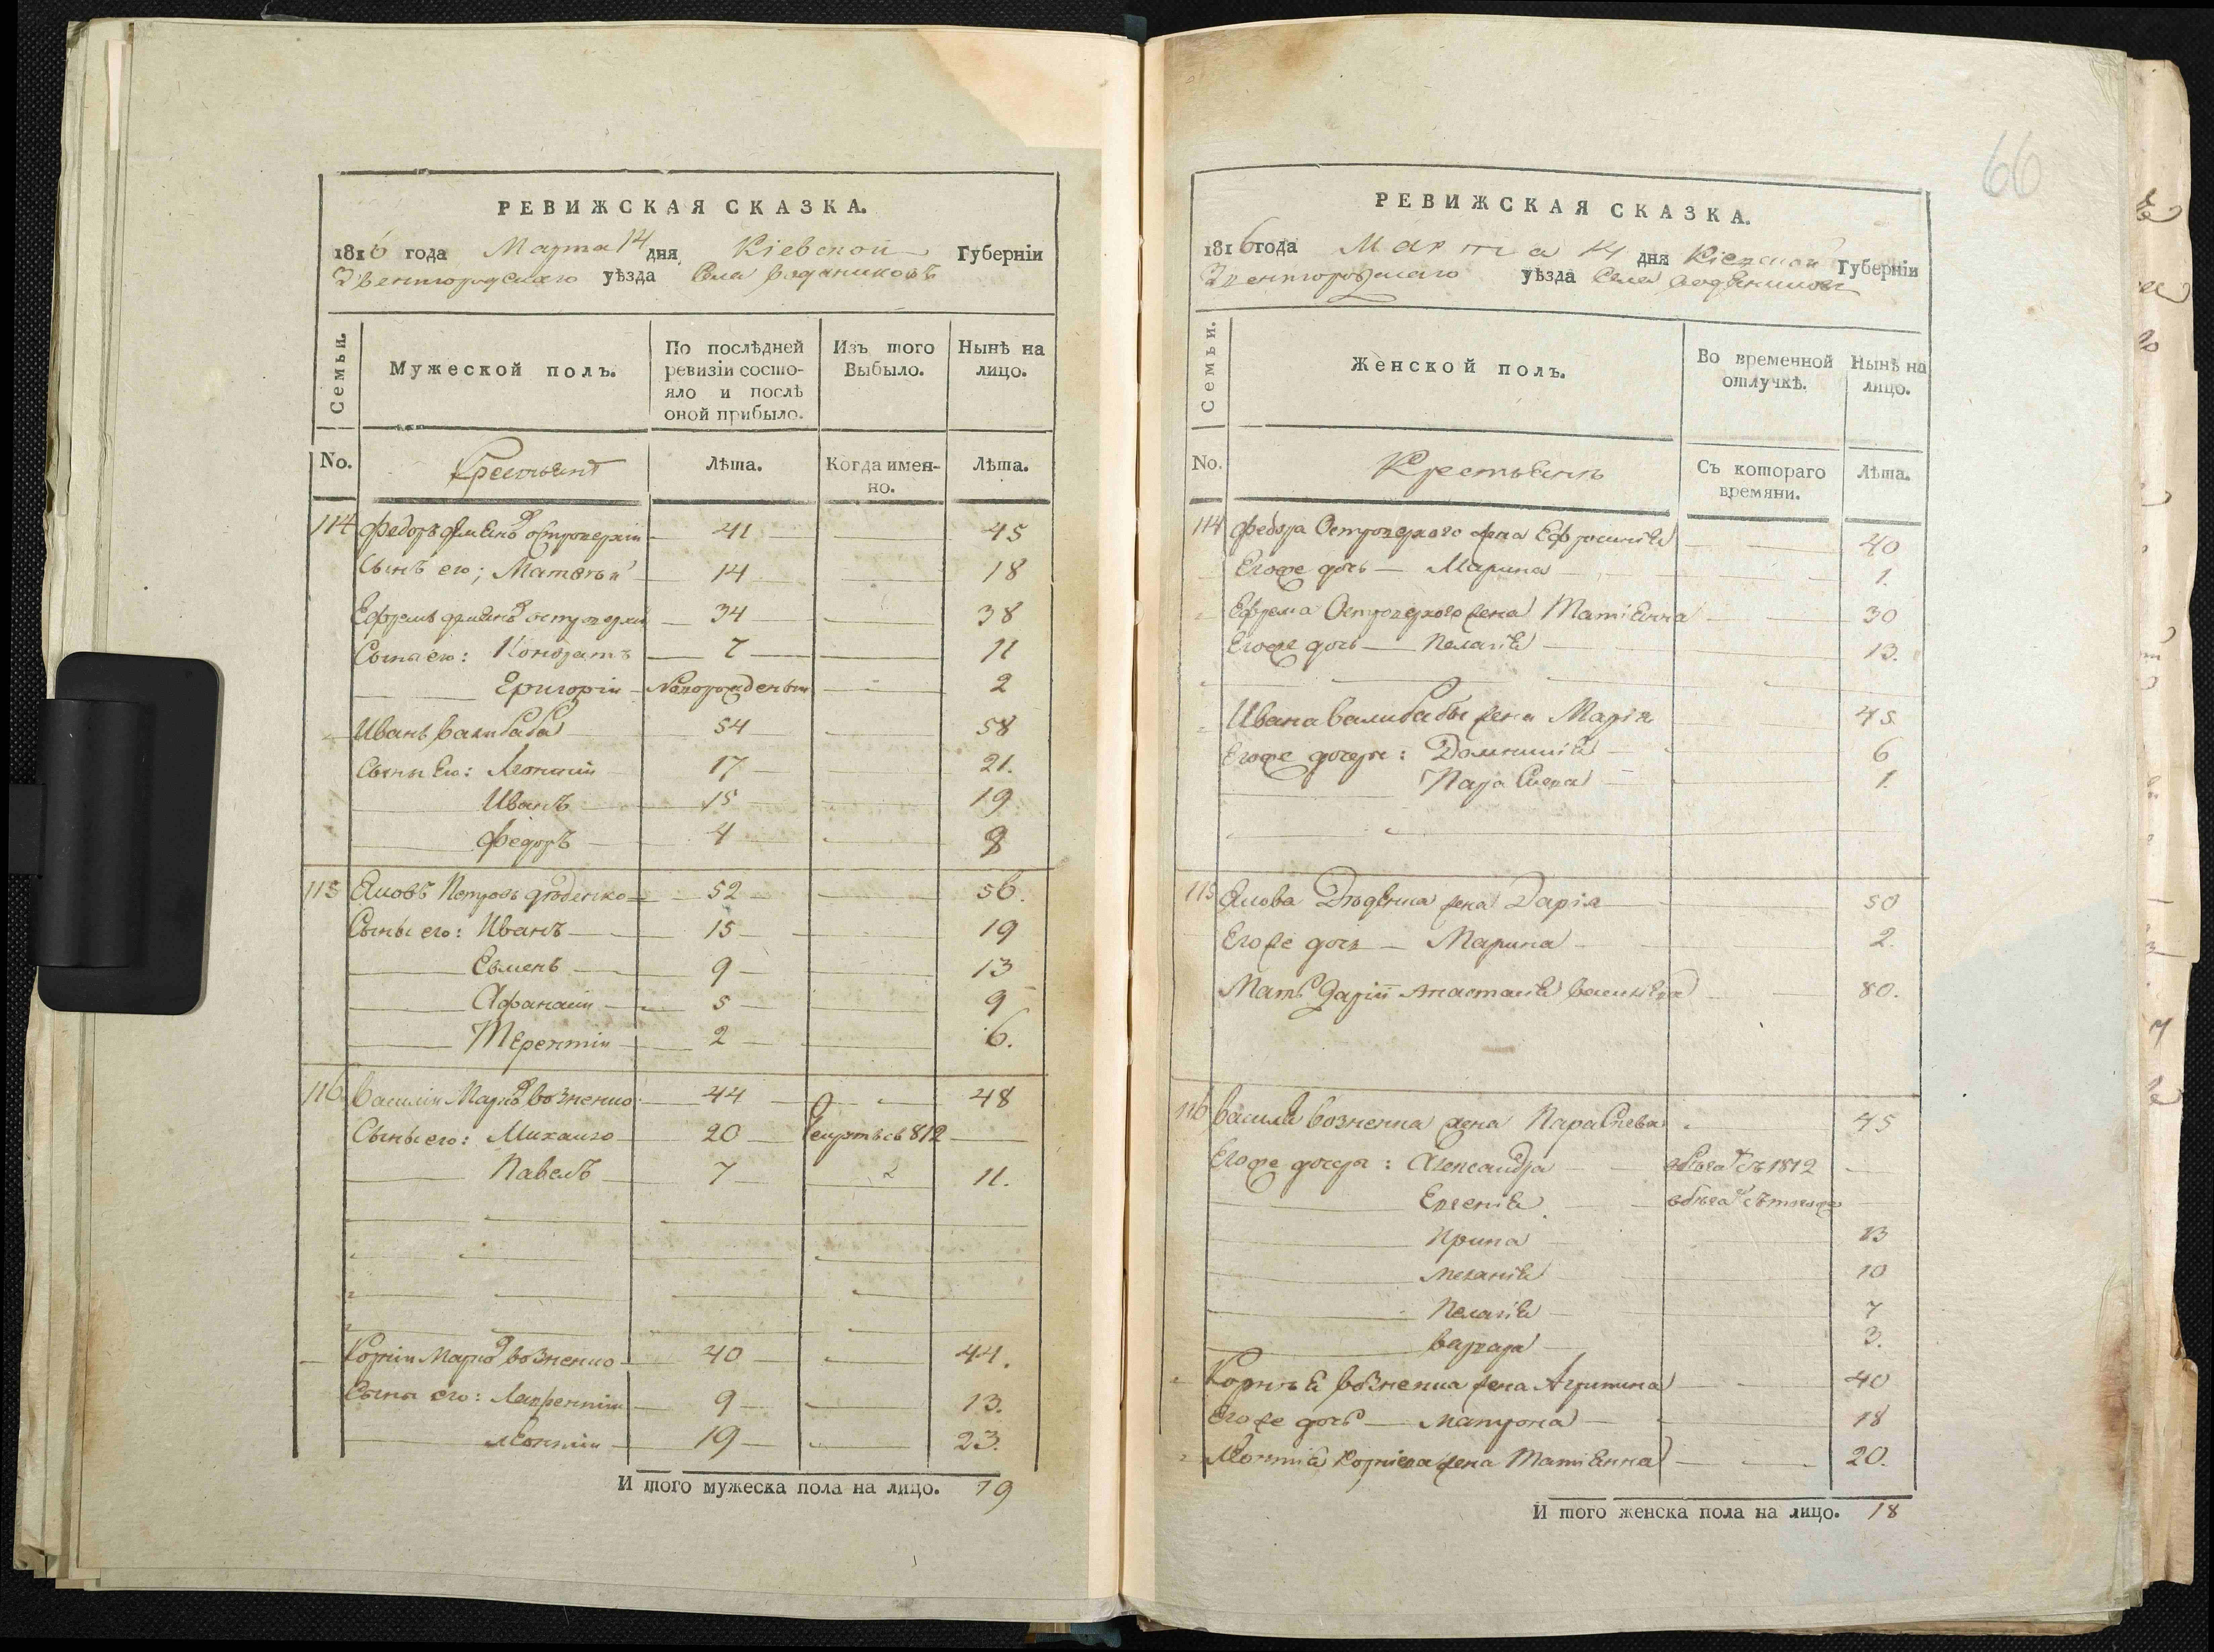 РЕВИЖСКАЯ СКАЗКА.
1816 года Марта 14 дня Кіевской Губерніи
Звенигородскаго уѣзда Села Водяниковъ
Семьи.
Мужеской полъ.
По послѣдней ревизіи состояло и послѣ оной прибыло.
Изъ того Выбыло.
Нынѣ на лицо.
No. Крестьянъ Лѣта. Когда именно. Лѣта.
114 Федоръ Островерхій 41 45
Сынъ его; Матвѣй 14 18
Ефремъ Островерхій 34 38
Сыны его: Кондратъ 7 11
Григорій Новорожденый 2
Иванъ Валибаба 54 58
Сыны Его: 17 21.
Иванъ 15 19
Федоръ 4 8
115 Яковъ Петровъ Дюденко 52 56.
Сыны его: Иванъ 15 19
Евменъ 9 13
Афанасій 5 9
Терентій 2 6.
116 Василій Марковъ Возненко 44 48
Сыны его: Михайло 20 812
Павелъ 7 11.
Корній Марковъ Возненко 40 44.
Сыны его: Лаврентій 9 13.
Леонтій 19 23.
И того мужеска пола на лицо. 19
66
РЕВИЖСКАЯ СКАЗКА.
1816 года Марта 14 дня Кіевской Губерніи
Звенигородскаго уѣзда Села Водяниковъ
Семьи.
Женской полъ.
Во временной отлучкѣ.
Нынѣ на лицо.
No. Крестьянъ Съ котораго времяни. Лѣта.
114 Федора Островерхого жена Ефросинія 40
Егоже дочь Марина 1.
Ефрема Островерхого жена Татіянна 30
Егоже дочь Пелагія 13.
Ивана Валибабы жена Марія 45
Егоже дочери: Домникія 6
Параскева 1.
115 Якова Дюденка жена Дарія 50
Егоже дочь Марина 2.
Мать Даріи Анастасія 80.
116 Василя Возненка жена Параскева 45
Егоже дочери: Александра съ 1812
Евгенія
Ирина 13
Меланія 10
Пелагія 7
Варвара 3.
Корнія Возненка жена Агрипина 40
Егоже дочь Матрона 18
Леонтія Корніева жена Татіянна 20.
И того женска пола на лицо. 18